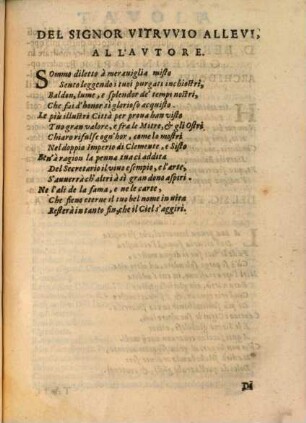 DEL SIGNOR VITRVVIO ALLEVI,
ALL'AVTORE.
Sommo diletto à merauiglia misto
Sento leggendo i tuoi purgati inchiostri,
Baldon, lume, e splendor de' tempi nostri,
Che fai d'honor sì glorioso acquisto.
Le più illustri Città per proua han visto
Tuo gran valore, e fra le Mitre, & gli Ostri
Chiaro risulse ogn'hor, come lo mostri
Nel doppio Imperio di Clemente, e Sisto
Ben'à ragion la penna tua ci addita
Del Secretario il vino esempio, e l'arte,
S'auuerrà ch'altri à sì gran dono aspiri.
Ne l'ali de la fama, e ne le carte,
Che fieno eterne il tuo bel nome in vita
Resterà in tanto fin, che il Ciel s'aggiri.
Di